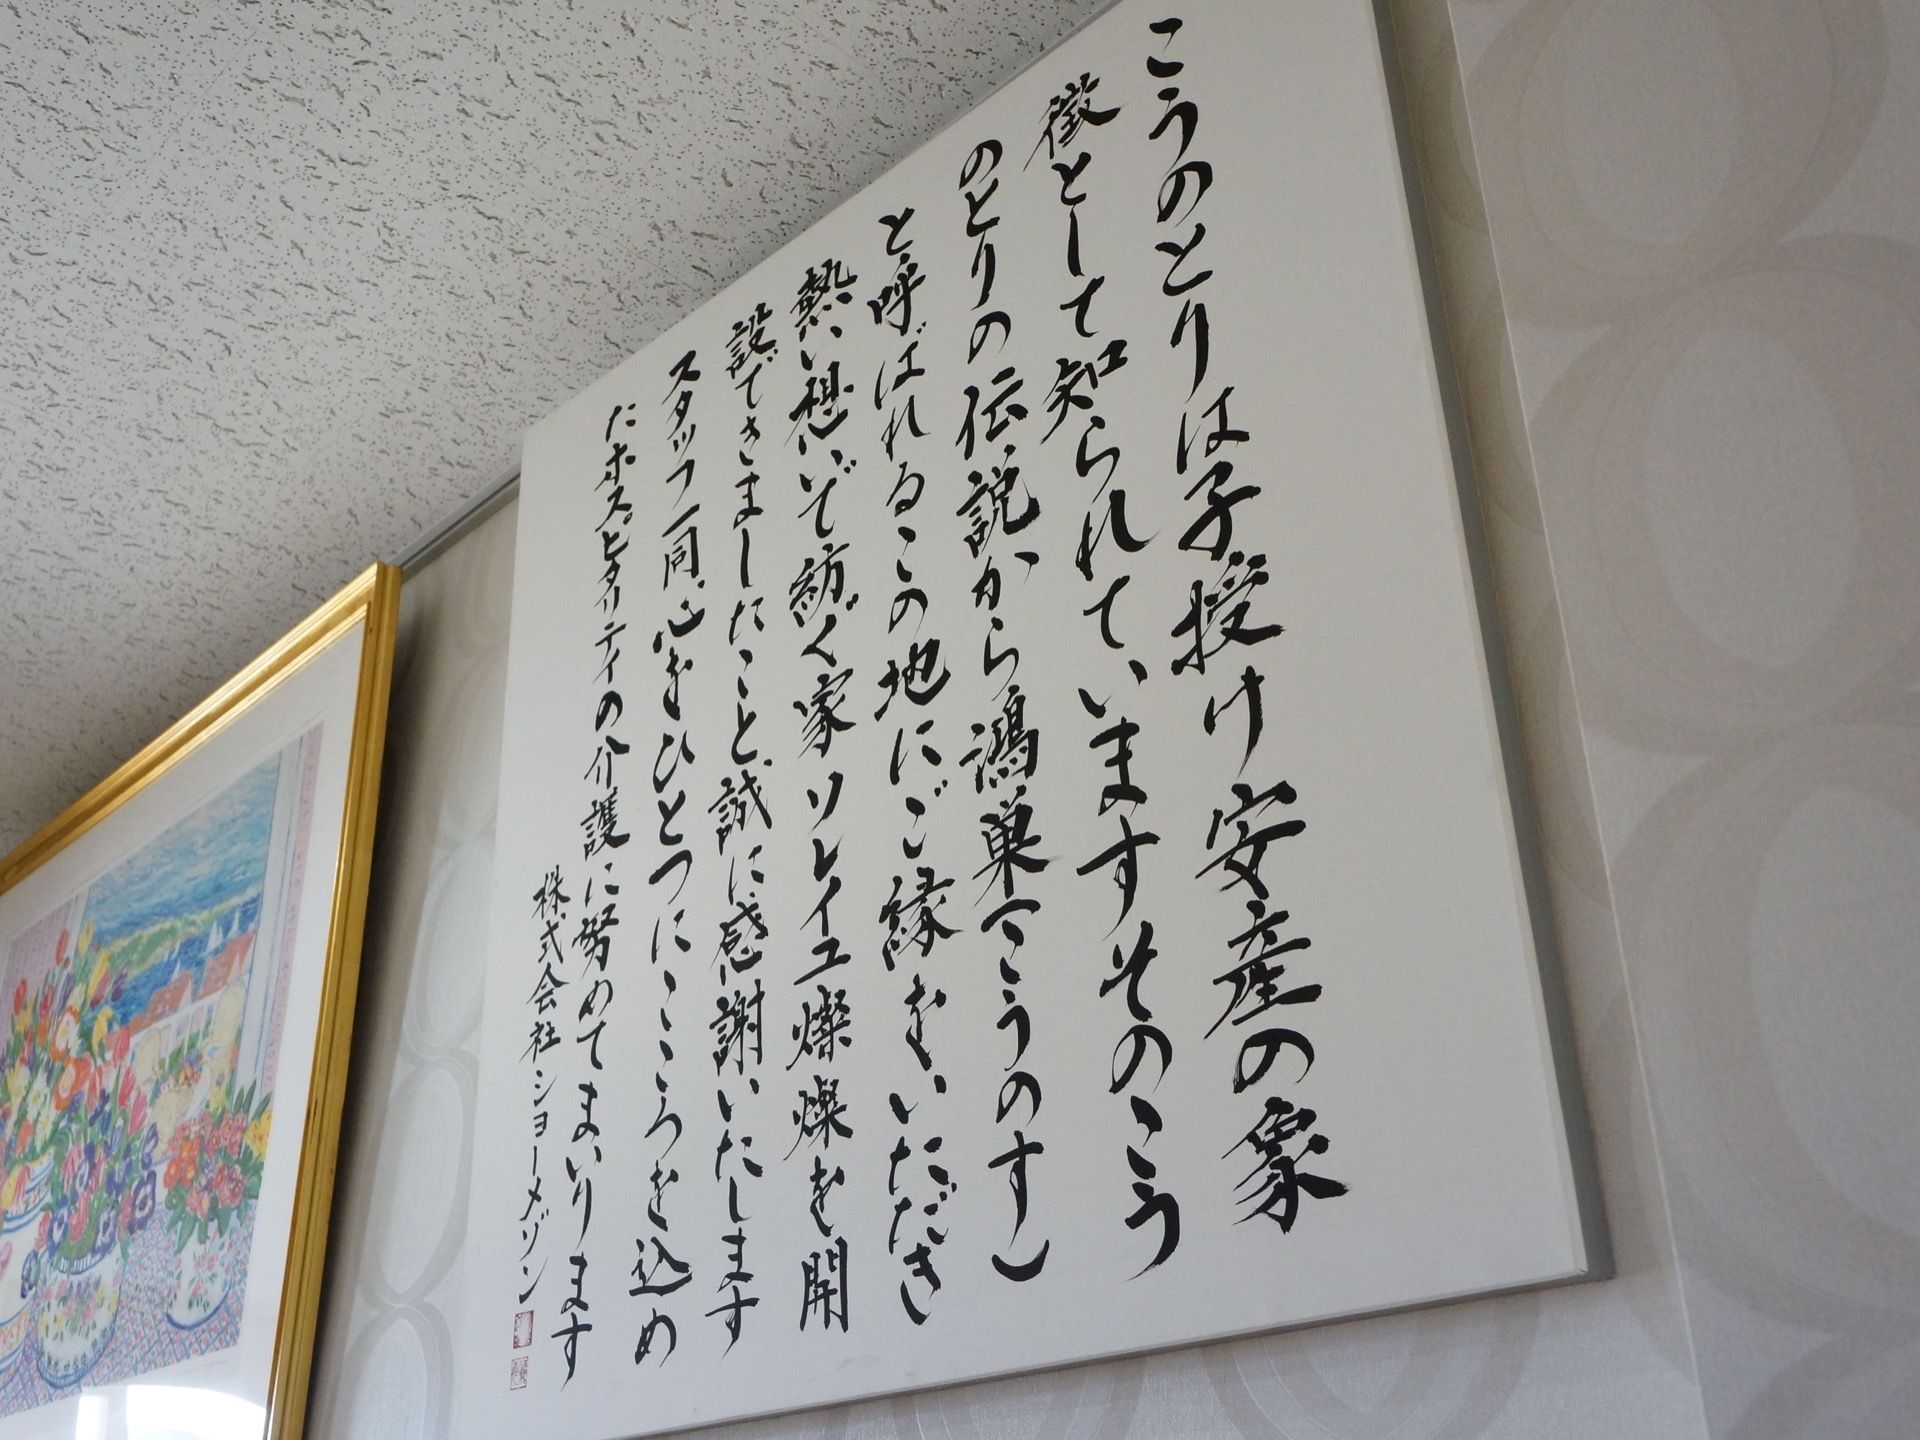 こうのとりは子授け安産の象
徴として知られていますそのこう
のとりの伝説から鴻巣(こうのす)
と呼ばれるこの地にご縁をいただき
熱い想いで紡ぐ家ソレイユ燦燦を開
設できましたこと誠に感謝いたします
スタッフ一同心をひとつにこころを込め
たホスピタリティの介護に努めてまいります
株式会社ショーメゾン